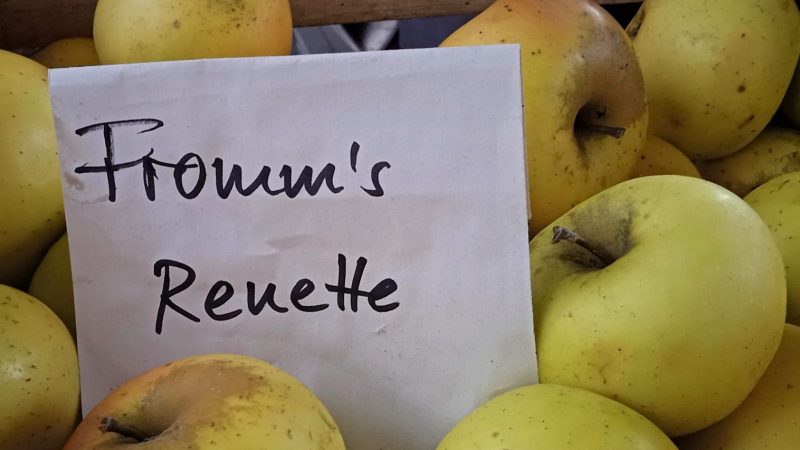 Fromm's
Renette